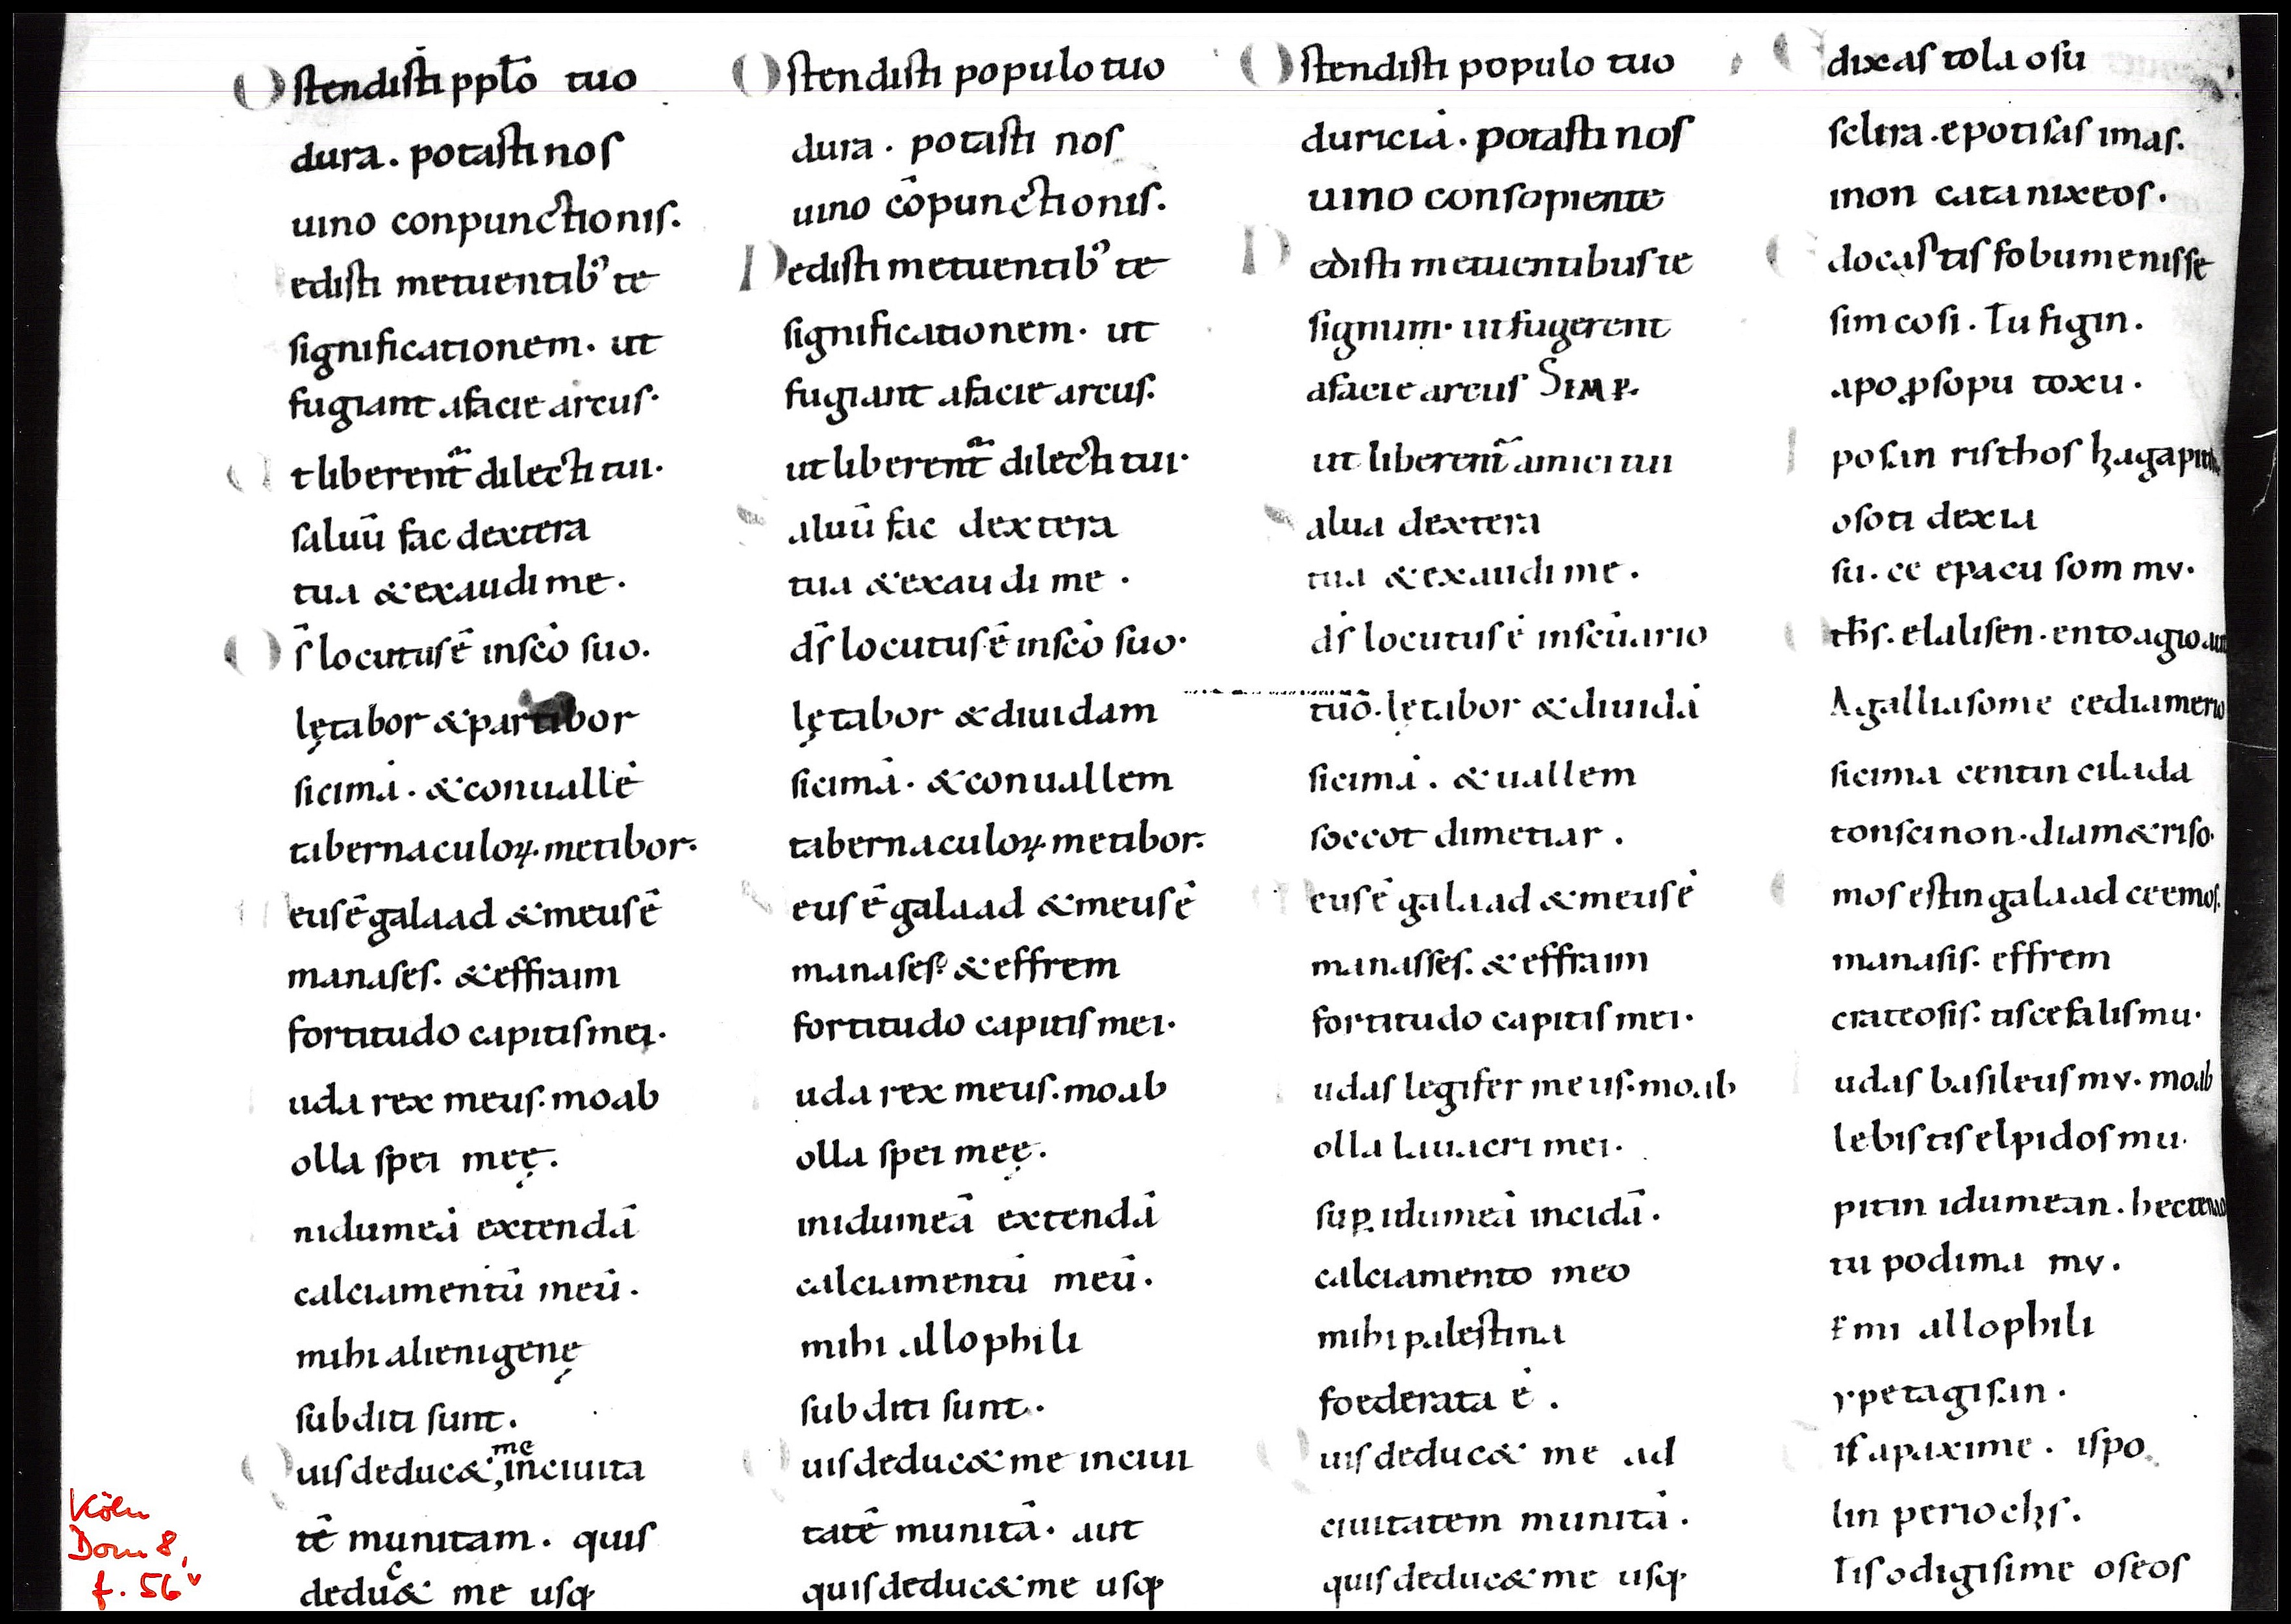 Ostendisti ppło tuo
dura. potasti nos
uino conpunctionis.
edisti metuentibꝰ te
significationem. ut
fugiant afacie arcus.
Ut liberent᷑ dilecti tui.
saluū fac dextera
tua & exaudi me.
Ds̄ locutus ē insc̄o suo.
lętabor & partibor
sicimā. & conuallē
tabernaculoꝝ. metibor.
eus ē galaad & meus ē
manases. & effraim
fortitudo capitis mei.
uda rex meus. moab
olla spei meę.
nidumeā extendā
calciamentū meū.
mihi alienigenę
subditi sunt.
Quis deduc& me inciuita
tē munitam. quis
deduc& me usq;
Ostendisti populo tuo
dura. potasti nos
uino cōpunctionis.
Dedisti metuentibꝰ te
significationem. ut
fugiant afacie arcus.
ut liberent᷑ dilecti tui.
Saluū fac dextera
tua & exaudi me.
ds̄ locutus ē insc̄o suo.
lętabor & diuidam
sicimā. & conuallem
tabernaculoꝝ. metibor.
Meus ē galaad & meus ē
manases. & effrem
fortitudo capitis mei.
uda rex meus. moab
olla spei meę.
inidumeā extendā
calciamentū meū.
mihi allophili
subditi sunt.
Quis deduc& me inciui
tatē munitā. aut
quis deduc& me usq;
Ostendisti populo tuo
duriciā. potasti nos
uino consopiente
Dedisti metuentibus te
signum. ut fugerent
afacie arcus SIMP.
ut liberent᷑ amici tui
Salua dextera
tua & exaudi me.
ds̄ locutus ē insc̄uario
tuo. lętabor & diuidā
sicimā. & uallem
soccot dimetiar.
Meus ē galaad & meus ē
manasses. & effraim
fortitudo capitis mei.
udas legifer meus. moab
olla lauacri mei.
suꝑ idumeā incidā.
calciamento meo
mihi palestina
foederata ē.
Quis deduc& me ad
ciuitatem munitā.
quis deduc& me usq;
Edixas tola osu
sclira. epotisas imas.
inon catanixeos.
Edocas tis fobumenis se
simcosi. Tu figin.
apo ꝓsopu toxu.
posan risthos hagapiti
osoti dexia
su. ce epacu som mv.
ths̄. elalisen. ento agio aut
Agalliasome cediamerio
sicima centin cilada
tonscinon. diam&riso.
Emos estin galaad ceemos.
manasis. effrem
crateosis. tiscefalis mu.
udas basileus mv. moab
lebis tis elpidos mu.
pitin idumean. hectenao
tu podima mv.
Emi allophili
ypetagisan.
is apaxime. ispo
lin periochs.
Tis odigisime oseos
Köln
Dom 8,
f. 56v